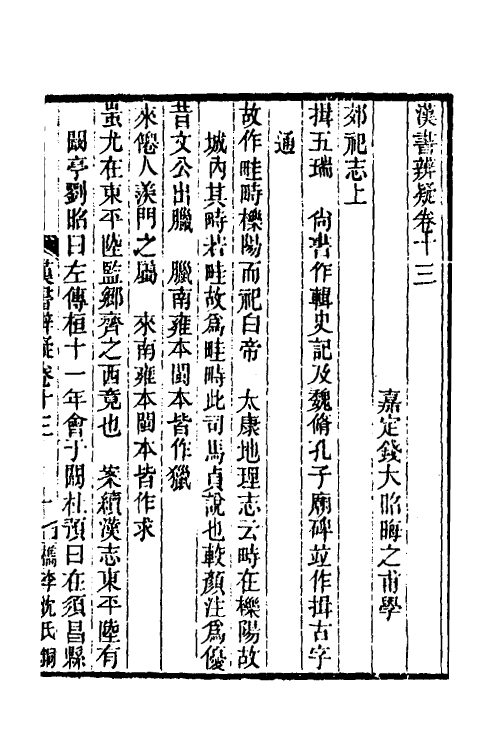 漢書辨疑卷十三
嘉定錢大昭晦之甫學
郊祀志上
揖五瑞　尚書作輯史記及魏脩孔子廟碑竝作揖古字
通
故作畦畤櫟陽而祀白帝　太康地理志云畤在櫟陽故
城內其畤若畦故爲畦畤此司馬貞說也較顏注爲優
昔文公出臘　臘南雍本閩本皆作獵
來僊人羨門之屬　來南雍本閩本皆作求
蚩尤在東平陸監鄉齊之西竟也　案續漢志東平陸有
闞亭劉昭曰左傳桓十一年會于闞杜預曰在須昌縣
漢書辨疑卷十三　一　檇李沈氏銅